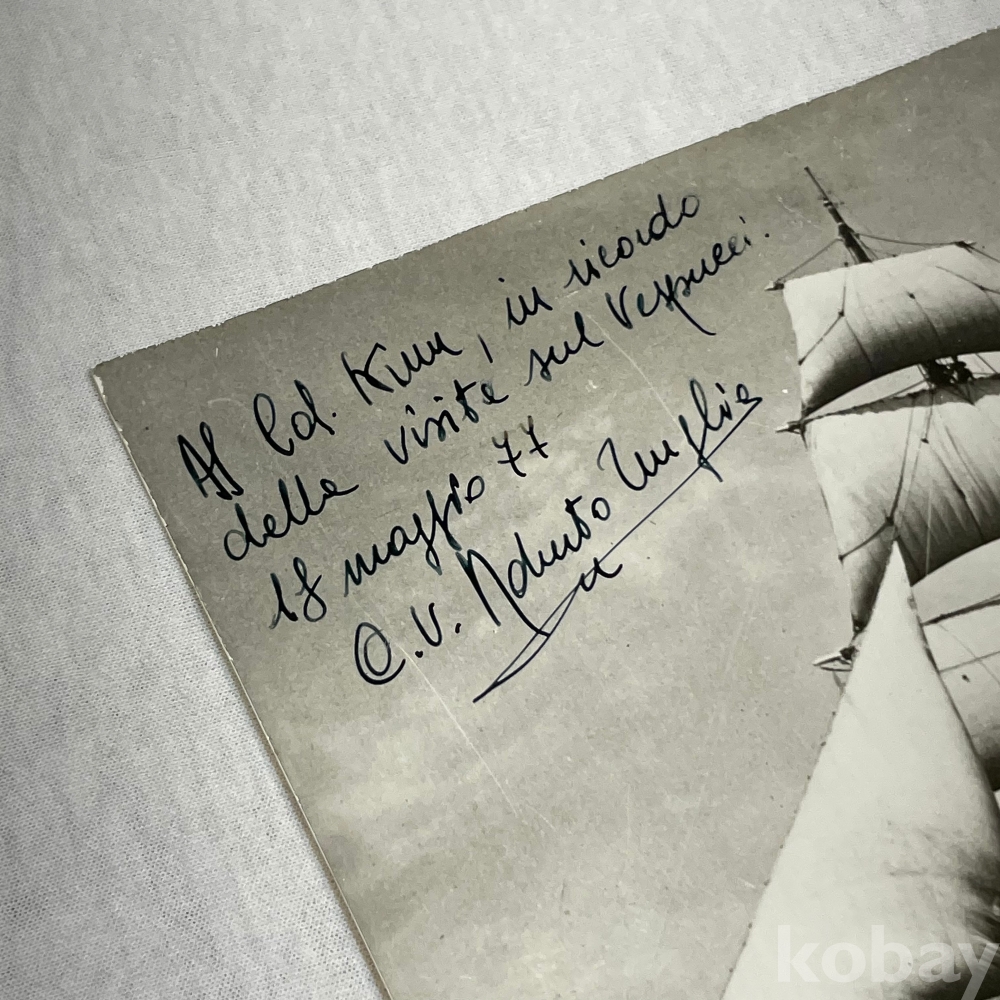 Al Col. Kim, in ricordo
della visita sul Vespucci.
18 maggio 77
C.V.
kobay